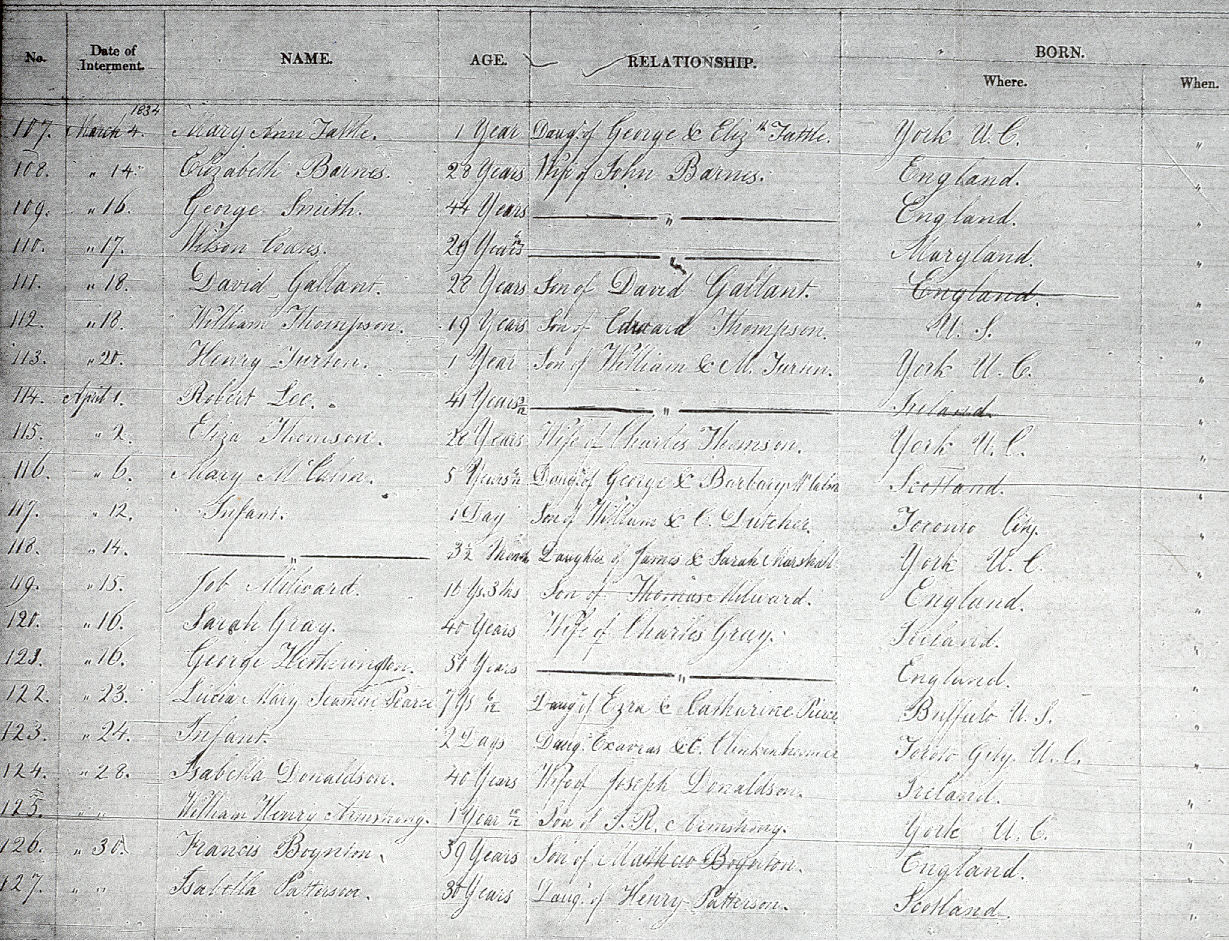 No. Date of Interment. NAME. AGE. RELATIONSHIP. BORN. Where. When.
1834
107. March 4. Mary Ann Tattle. 1 Year Daug. of George & Eliz.th Tattle. York U.C. "
108. " 14. Elizabeth Barnes. 28 Years Wife of John Barnes. England. "
109. " 16. George Smith. 44 Years " England. "
110. " 17. Wilson 29 Years " Maryland. "
111. " 18. David Gallant. 28 Years Son of David Gallant. England. "
112. " 18. William Thompson. 19 Years Son of Edward Thompson. U.S. "
113. " 20. Henry Turton. 1 Year Son of William & M. York U.C. "
114. April 1. Robert Lee. 41 Years " Ireland. "
115. " 2. Eliza Thomson. Years Wife of Charles Thomson. York U.C. "
116. " 6. Mary 5 Years Daug. of George & Barbary Scotland. "
117. " 12. Infant. 1 Day Son of William & C. Dutcher. Toronto City. "
118. " 14. " 3½ Daughter of James & Sarah Marshall York U.C. "
119. " 15. Job Milward. Son of Thomas Milward. England. "
120. " 16. Sarah Gray. 40 Years Wife of Charles Gray. Ireland. "
121. " 16. George Hetherington. 51 Years " England. "
122. " 23. Lucia Mary Pearce 7 Ys Daug. of Ezra & Catharine Pierce Buffulo U.S. "
123. " 24. Infant. 2 Days Daug. & C. Clinkenhoomer City U.C. "
124. " 28. Isabella Donaldson. 40 Years Wife of Joseph Donaldson. Ireland. "
125. " " William Henry Armstrong. 1 Year Son of J.R. Armstrong. York U.C. "
126. " 30. Francis Boynton. 39 Years Son of Mathew Boynton. England. "
127. " " Isabella Patterson. 30 Years Daug. of Henry Patterson. Scotland. "